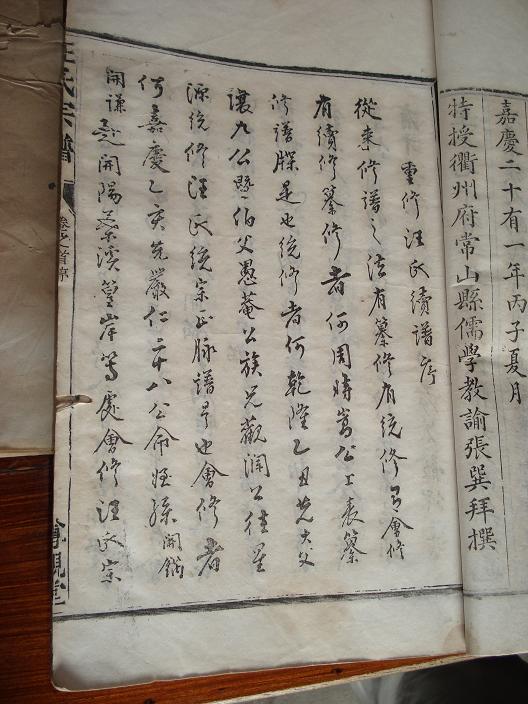 嘉慶二十有一年丙子夏月
特授衢州府常山縣儒學教諭張巽拜撰
重修汪氏續譜序
從来修譜之法有纂修有統修有會修
有續修纂修者何周時嵩公上表纂
修譜牒是也統修者何乾隆乙丑先大父
讓九公縣伯父愚菴公族兄觀瀾公往星
源統修汪氏統宗正脉譜是也會修者
何嘉慶乙亥先嚴仁二十八公命姪孫開
開謙 開陽 溪篁岸等處會修汪氏宗
汪氏宗譜
卷之首序